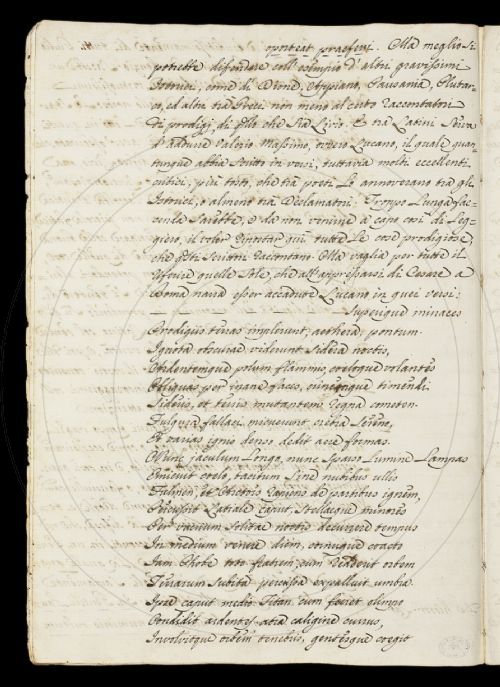 oporteat praeferri. Ma meglio si
potrebbe difendere coll'esempio d'altri gravissimi
Istorici, come di Dione, Appiano, Pausania, Plutar-
co, ed altri tra Greci non meno al certo raccontatori
di prodigj di quello che sia Livio. E tra Latini senza
d'addurre Valerio Massimo, ovvero Lucano, il quale quan-
tunque abbia scritto in versi, tuttavia molti eccellenti
critici, più tosto, che tra poeti lo annoverano tra gli
Istorici, o almeno tra Declamatori; Troppo lunga fac-
cenda sarebbe, e da non venirne a capo così di leg-
giero, il voler
qui tutte le cose prodigiose,
che questi Scrittori raccontano. Ma vaglia per tutte il
riferire quelle sole, che all'appressarsi di Cesare a
Roma narra esser accadute Lucano in quei versi:
Superique minaces
Prodigiis terras implerunt, aethera, pontum.
Ignota obscurae viderunt sidera noctes,
Ardentemque polum flammis, coeloque volantes
Obliquas per inane faces, crinemque timendi
Sideris, et terris mutantem regna cometen.
Fulgura fallaci micuerunt crebra sereno,
Et varias ignis denso dedit aere formas.
Nunc jaculum longo, nunc sparso lumine lampas
Emicuit coelo, tacitum sine nubibus ullis
Fulmen, et Arctois rapiens de partibus ignem,
Percussit Latiale caput, stellaeque minores
Per vacuum solitae noctis decurrere tempus
In medium venere diem, cornuque coacto
Iam Phoebe toto fratrem cum redderet orbem
Terrarum subita percussa expalluit umbra.
Ipse caput medio Titan cum ferret olimpo
Condidit ardentes atra caligine currus,
Involvitque orbem tenebris, gentesque coegit